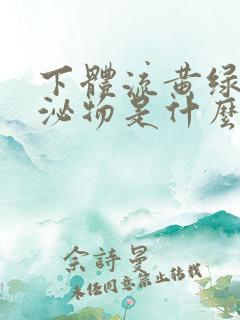 下體流黄绿
泌物是什麼
余詩曼
未任同意禁止转载